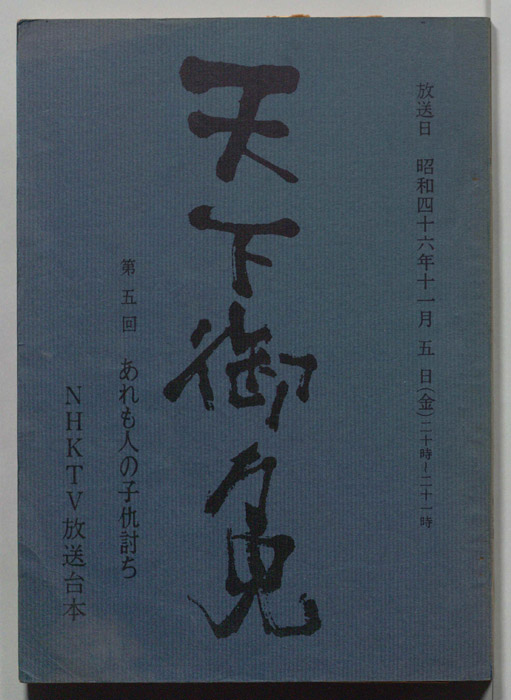 放送日 昭和四十六年十一月五日(金)二十時~二十一時
天下御免
第五回 あれも人の子仇討ち
NHKTV放送台本